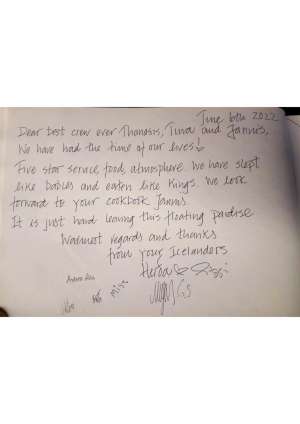 June 6th 2022
Dear best crew ever Thanasis, Tina and Jannis,
We have had the time of our lives!
Five star service, food, atmosphere. We have slept
like babies and eaten like Kings. We look
forward to your cookbook Jannis.
It is just hard leaving this floating paradise
Warmest regards and thanks
from your Icelanders
Herba & Siggi